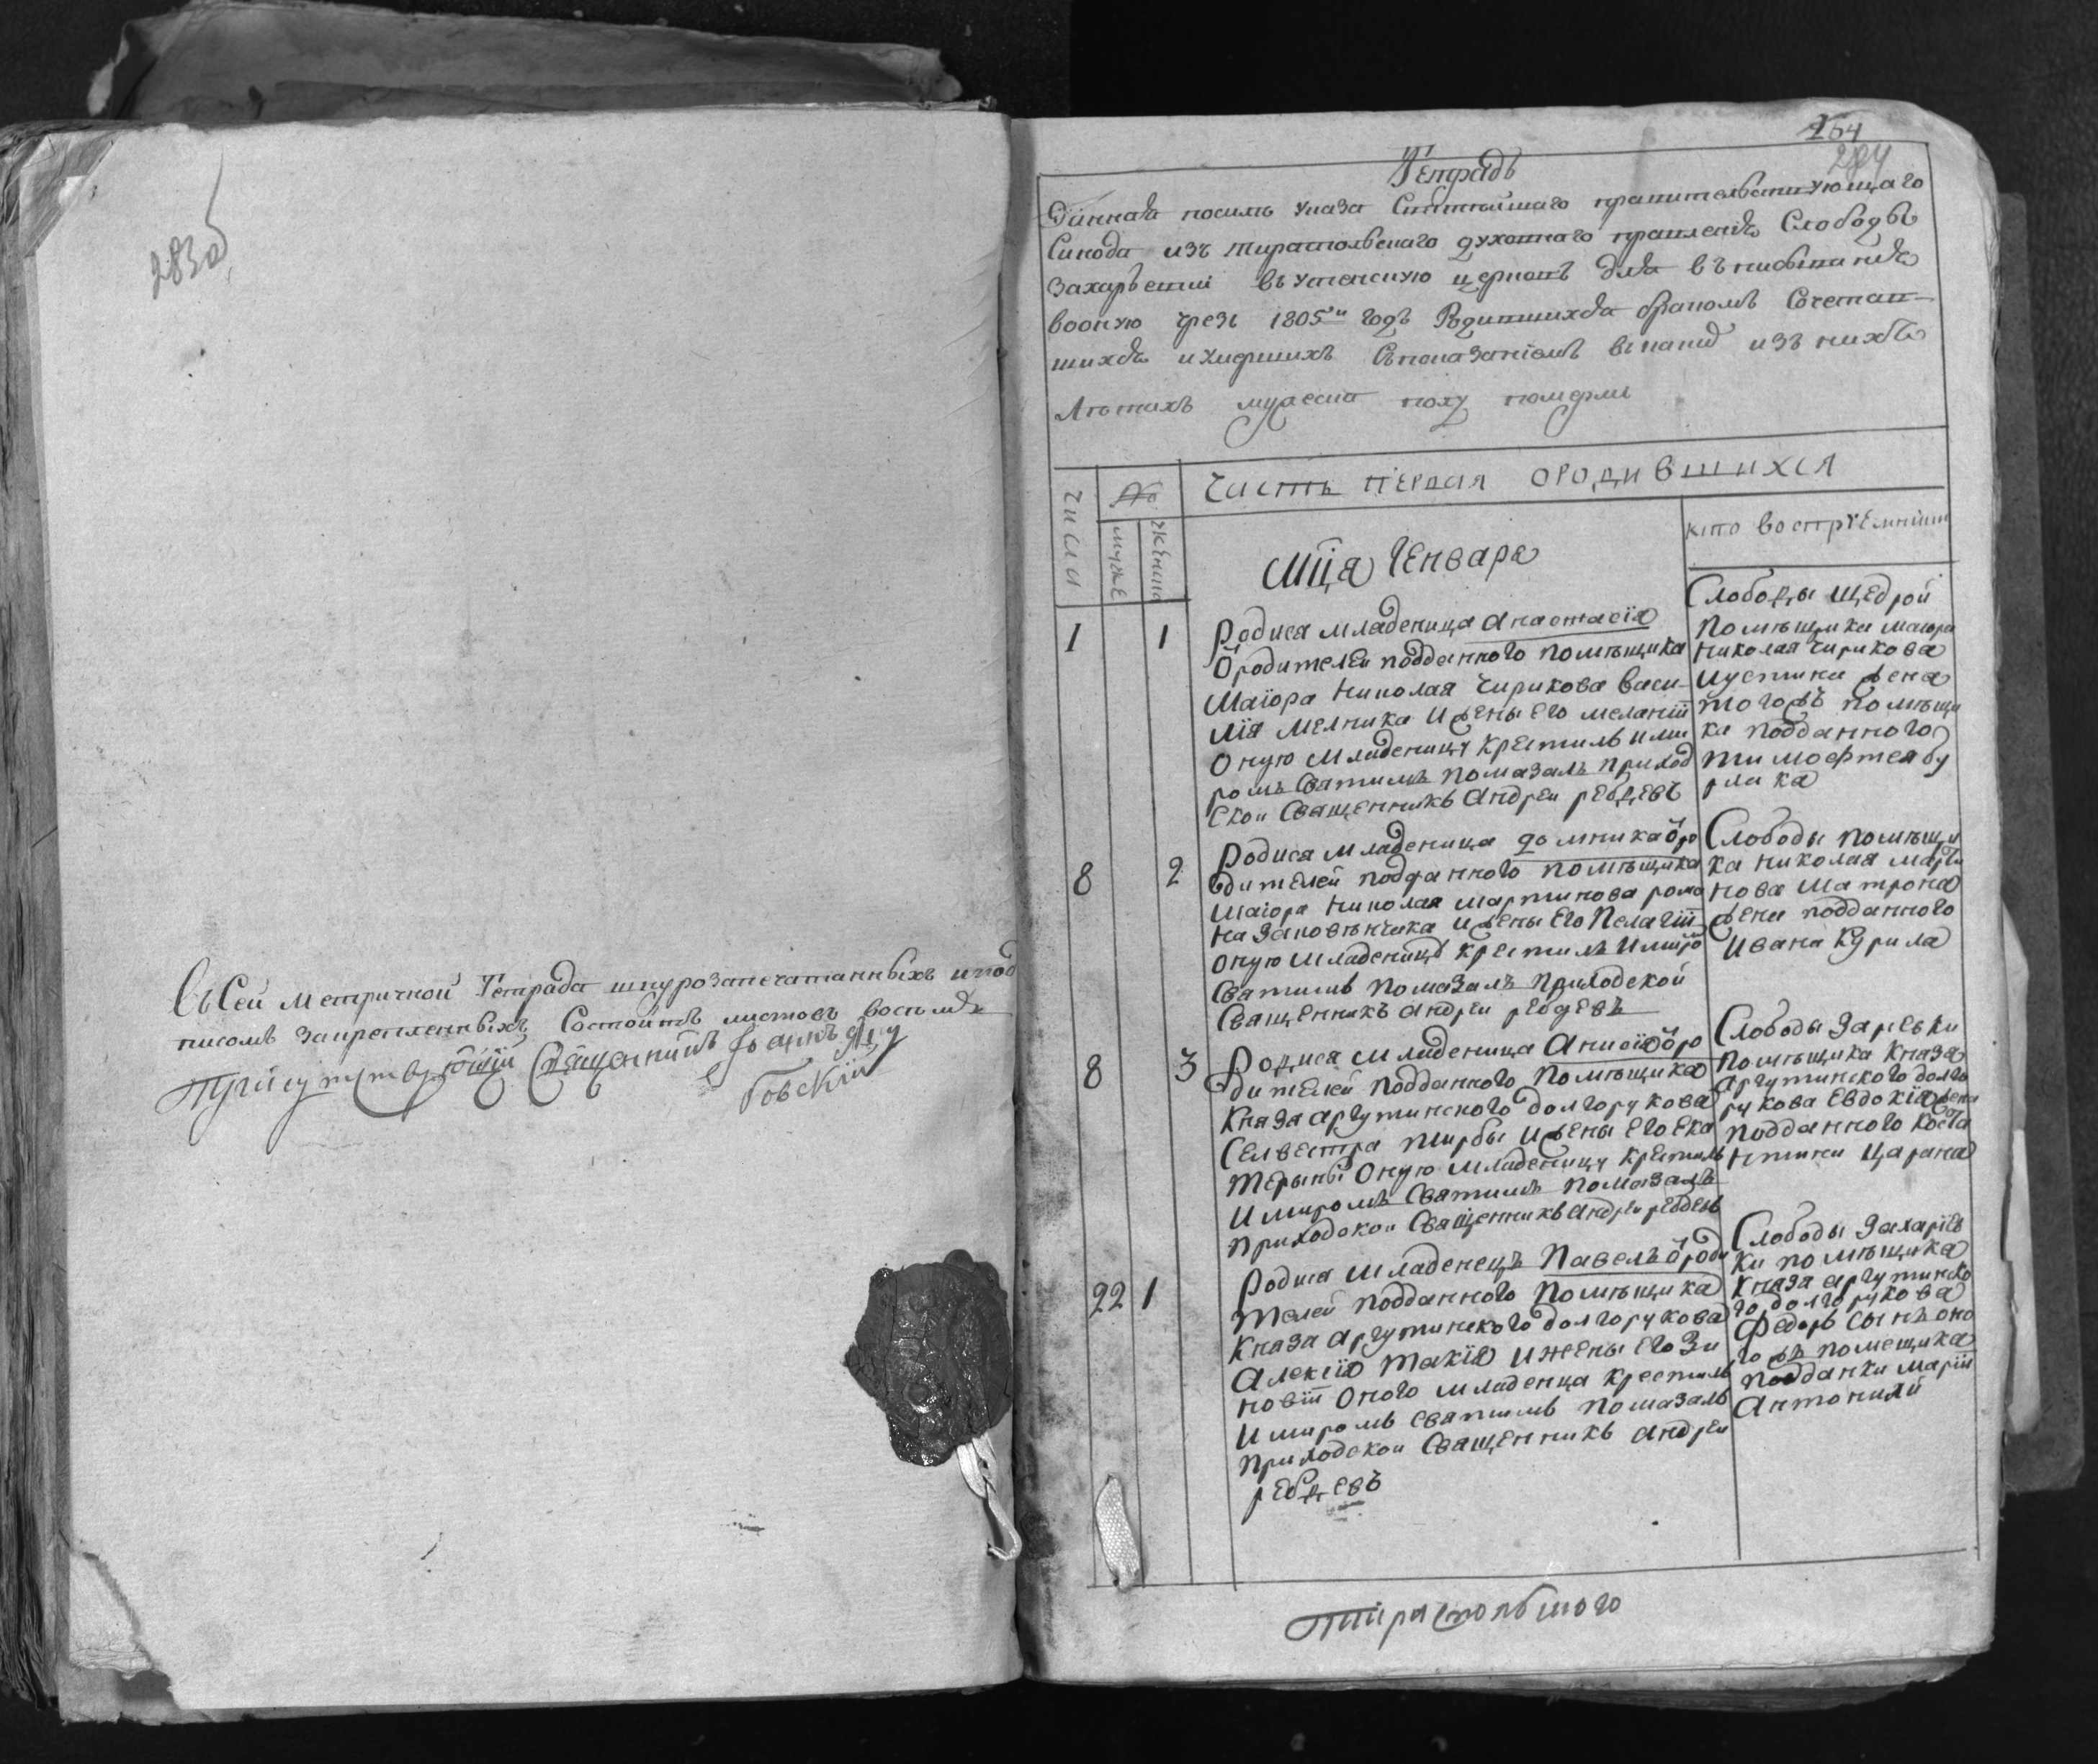 283об
Въ Сей метричной Тетрада шнурозапечатанныхъ и под
писомъ закрепленныхъ Состоитъ листовъ восьмъ
Присутствующій Священникъ Іоаннъ
говскій
264
284
Тетрадь
Данная посилѣ указа Святѣйшаго правительствующаго
Синода изъ тираспольскаго духовнаго правленія Слободы
Захарьевки въ успенскую церковь для въписыванія
вооную чрезъ 1805й годъ Родившихся бракомъ Сочетав
шихся и умершихъ Съпоказаніемъ въ изъ нихъ
Лѣтахъ мужеска полу померли
числа
№
муже
женска
Часть первая ородившихся
кто воспріемникъ
Мца Генваря
1 1
Родися младеница Анастасія
ѿродителей подданного помѣщика
Маіора Николая Чирикова васи
лія мелника и жены его меланіи
оную младеницу крестилъ и ми
ромъ Святимъ помазалъ приход
ской Священникъ Андреи ребдевъ
Слободы Щедрой
помѣщика маіора
Николая Чирикова
иустина жена
тогожъ помѣщи
ка подданного
тимофтея бу
рлика
8 2
Родися младеница домника ѿро
дителей подданного помѣщика
Маіора Николая мартинова рома
на заповѣнчика и жены Его Пелагіи
оную младеницу крестилъ и миро
Святимъ помазалъ приходской
Священникъ андреи ребдевъ
Слободы помѣщи
ка николая марти
нова матрона
жена подданного
ивана Курила
8 3
Родися младеница Анисія ѿро
дителей подданного помѣщика
Князя аргутинского долгорукова
Селвестра тирбы и жены его Ека
терыны оную младеницу крестилъ
и миромъ Святимъ помазалъ
приходской Священникъ Андреи ребдевъ
Слободы Заревки
помѣщика Князя
аргутинского долго
рукова Евдокія жена
подданного Коста
нтина Царана
22 1
Родися младенецъ Павелъ ѿроди
телей подданного помѣщика
Князя аргутинского долгорукова
Алексія такія и жены его Зи
новіи оного младенца крестилъ
и миромъ святимъ помазалъ
приходской Священникъ андреи
ребдевъ
Слободы Захаріев
ки помѣщика
Князя аргутинско
го долгорукова
федоръ сынъ оно
гожъ помещика
подданки маріи
Антонихи
Тираспольшого